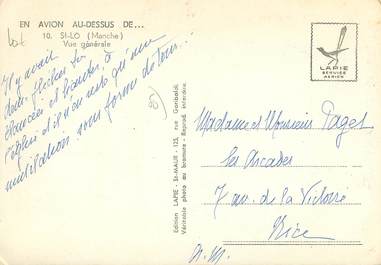 EN AVION AU-DESSUS DE...
10. St-LO (Manche)
Vue générale
Il y avait
deux flèches
élancées et hautes, à
l'église et il n'en reste qu'une
mutilation sous forme de tour...
LAPIE
SERVICE
AERIEN
Edition LAPIE - St-MAUR - 125, rue Garibaldi.
Véritable photo au bromure - Reprod. interdite.
Madame et Monsieur Pages
les Arcades
7 av. de la Victoire
Nice
A. M.